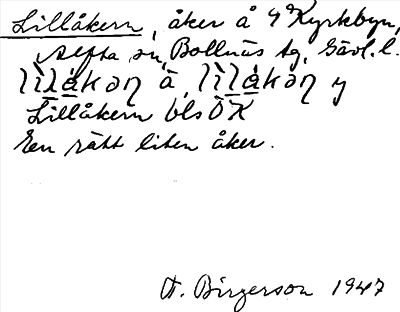 Lillåkern, åker å 4ª Kyrkbyn,
Alfta sn, Bollnäs tg, Gävl. l.
lìlåkəɳ ä, lìlåkəɳ y
Lillåkern bls ÖK
En rätt liten åker.
A. Birgerson 1947